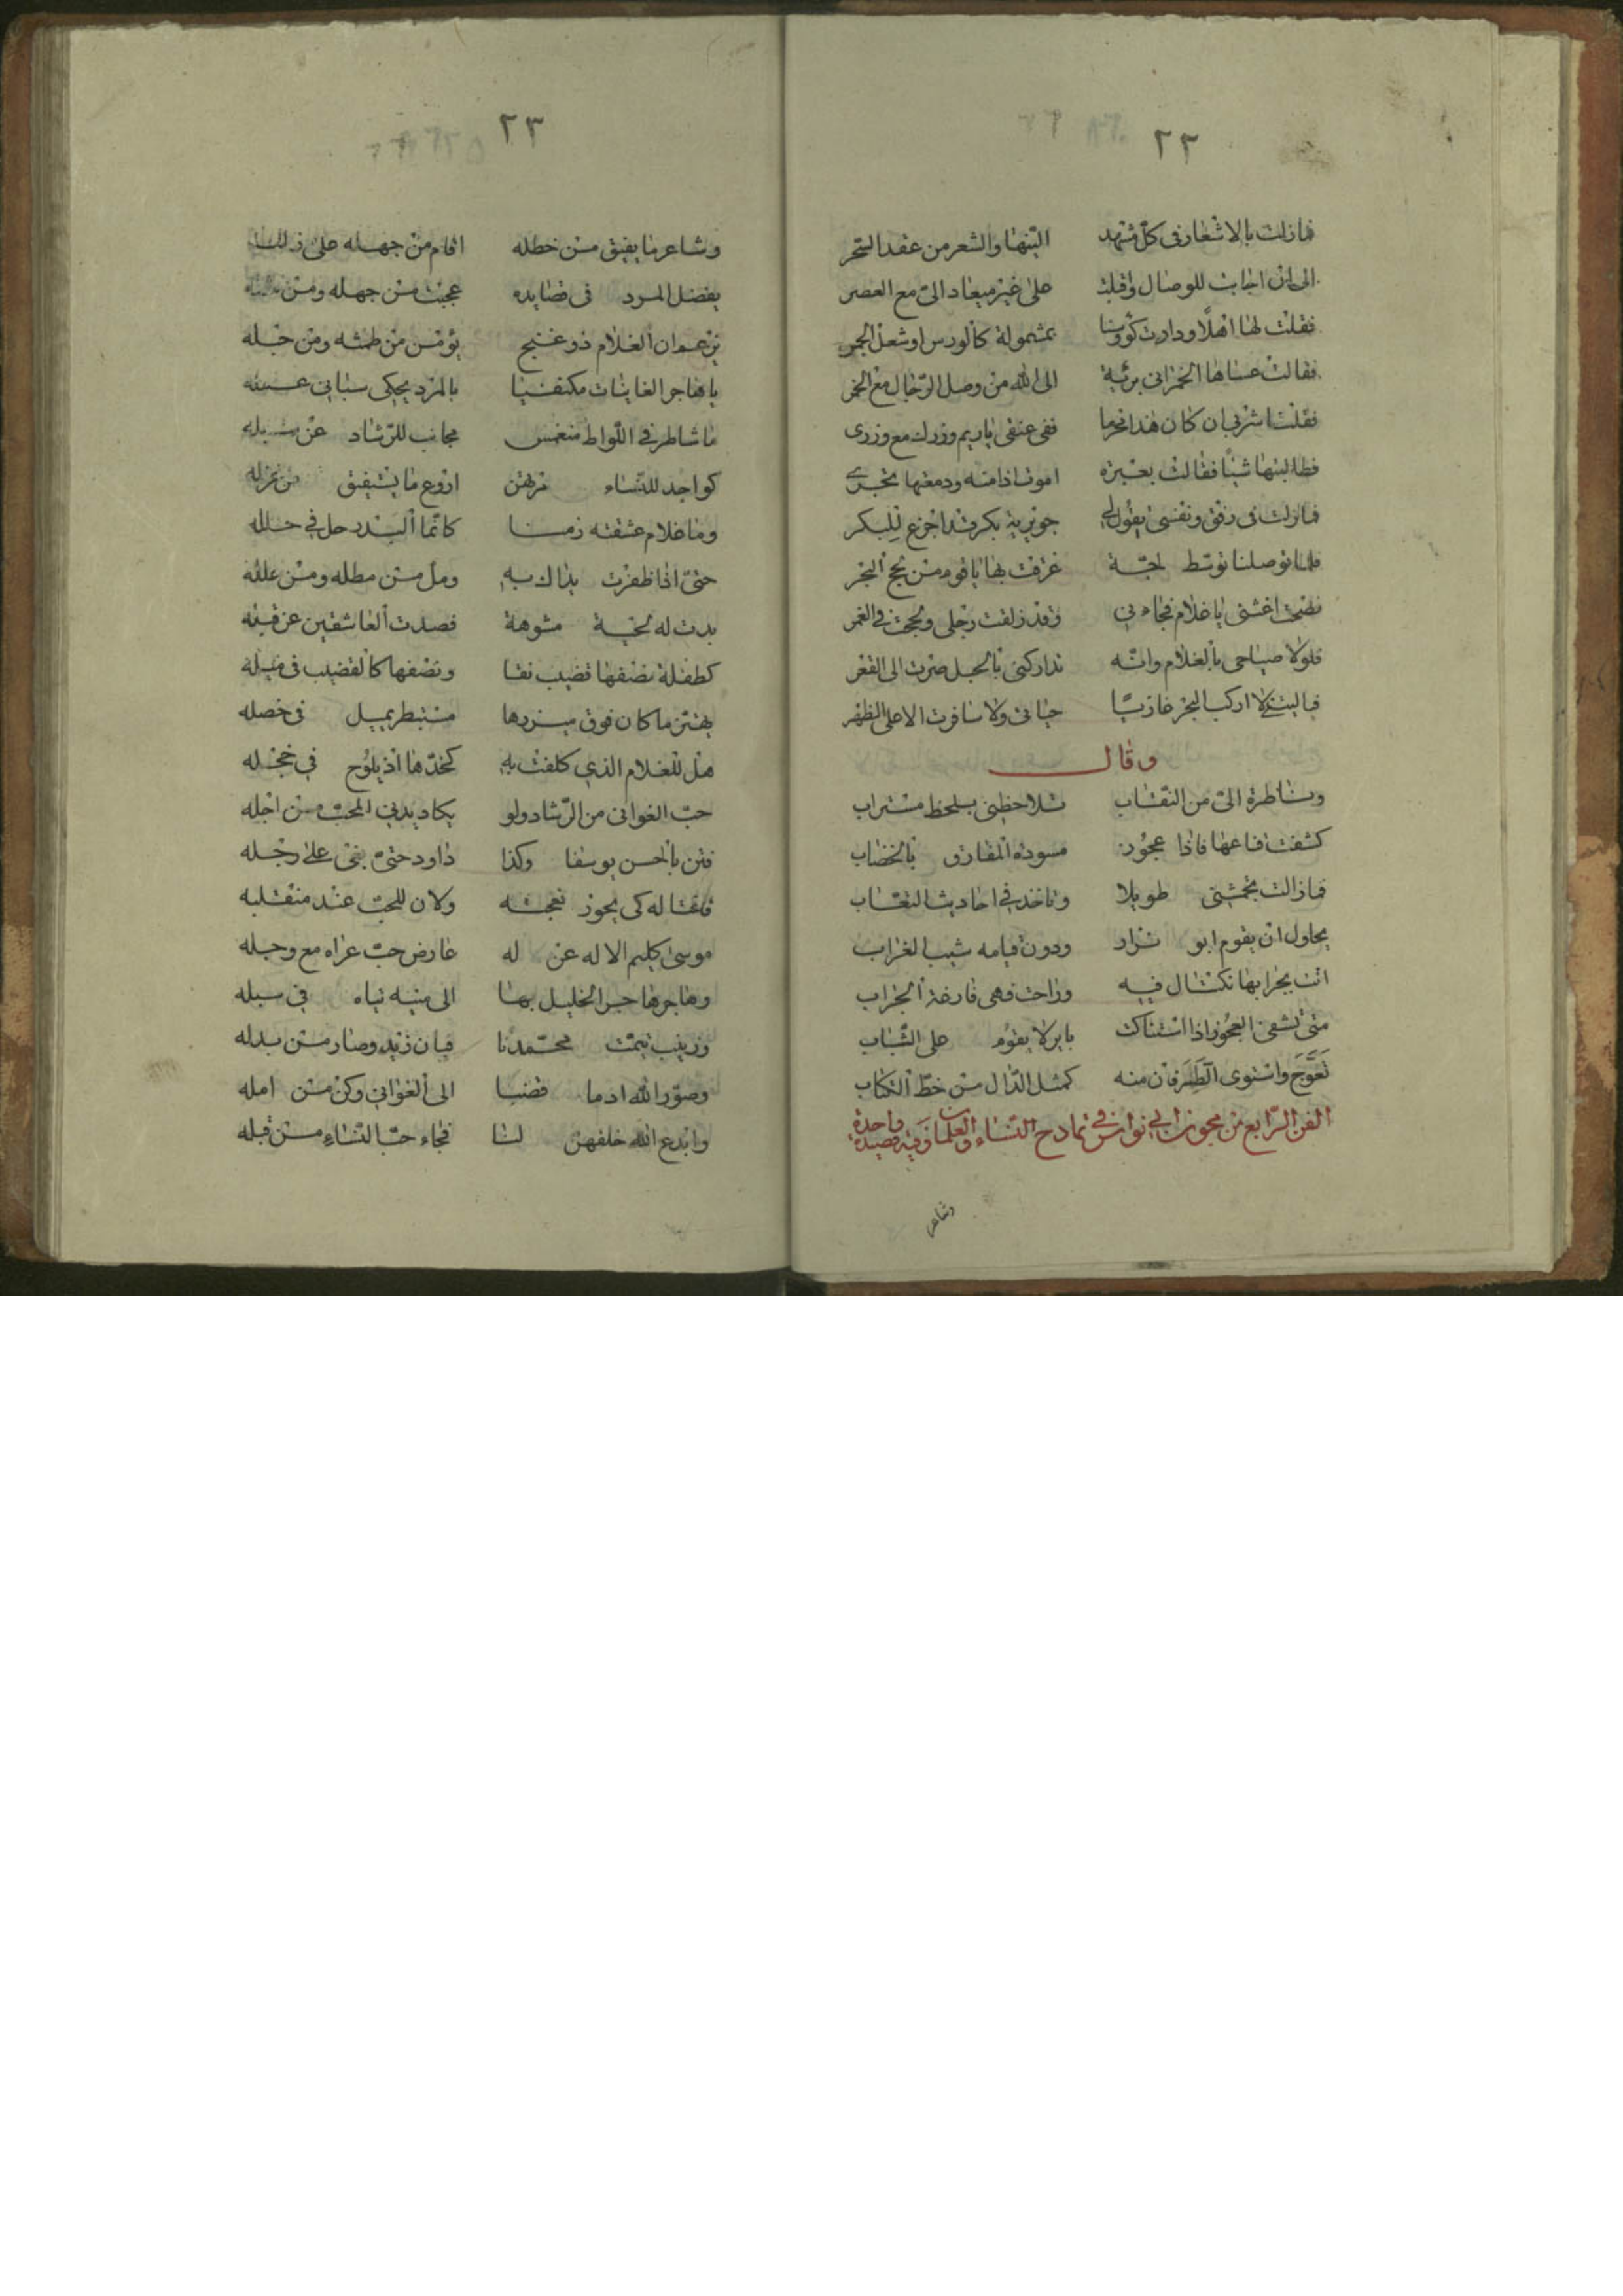 ٢٢
فمازلت بالاشعار فى كل مشهد الينها والشعر من عقد السحر
الى ان اجابت للوصال واقبلت على غير ميعاد الى مع العصر
فقلت لها اهلا ودارت كؤوسنا بمشمولة كالورس او شعل الجمر
فقالت عساها الخمر انى بريئة الى الله من وصل الرجال مع الخمر
فقلت اشربى ان كان هذا محرما ففى عنقى ياريم وزرك مع وزرى
فطالبتها شيئا فقالت بعبرة اموت اذا منه ودمعتها تجرى
فمازلت فى رفق ونفسى تقول لى جويرية بكر وقد اجزع للبكر
فلما توصلنا توسط لجة غرقت بها يا قوم من لجج البحر
فصحت اغثنى يا غلام فجاءنى وقد زلقت رجلى ولججت فى الغمر
فلولا صياحى بالغلام وانه تداركنى بالحبل صرت الى القعر
فياليتنى لا اركب البحر غازيا حياتى ولا سافرت الا على الظهر
وقال
وشاطرة الى من النقاب تلاحظنى بلحظ مستراب
كشفت قناعها فاذا عجوز مسودة المفارق بالخضاب
فمازالت تجمشنى طويلا وتاخذ فى احاديث التصاب
يحاول ان يقوم ابو نزار ودون قيامه شيب الغراب
اتت بجرابها تكتال فيه وراحت وهى فارغة الجراب
متى تشفى العجوز اذا استناكت باير لا يقوم على الشباب
تعوج واستوى الطرفان منه كمثل الدال من خط الكتاب
الفن الرابع من مجون ابى نواس فى تمادح النساء والغلمان وفيه قصيدة واحدة
وشاعر
٢٣
وشاعر ما يفيق من خطله اقام من جهله على زلله
يفضل المرد فى قصايده عجبت من جهله ومن
يزعم ان الغلام ذو غنج يؤمن من طمثه ومن حبله
يا هاجر الغانيات مكتفيا بالمرد
ما شاطر فى اللواط منغمس مجانب للرشاد عن سبله
كواجد للنساء اروع ما يستفيق من غزله
وما غلام عشقته زمنا كانما البدر حل فى حلله
حتى اذا ظفرت يداك به ومل من مطله ومن علله
بدت له لحية مشوهة فصدت العاشقين عن قبله
كطفلة نصفها قضيب نقا ونصفها كالقضيب فى ميله
يهتز ما كان فوق ميزرها مسبطر يميل فى خصله
هل للغلام الذى كلفت به كخدها اذ يلوح فى خجله
حب الغوانى من الرشاد ولو يكاد يدنى المحب من اجله
فتن بالحسن يوسفا وكذا داود حتى بغى على رجله
له كى يحوز نعجته ولان للحب عند منقلبه
موسى كليم الاله عن له عارض حب عراه مع وجله
وهاجر هاجر الخليل بها الى فى سبله
وزينب تيمت محمدنا فبان زيد وصار من بدله
وصور الله ادما فصبا الى الغوانى وكن من امله
وابدع الله خلقهن لنا فجاء حب النساء من قبله